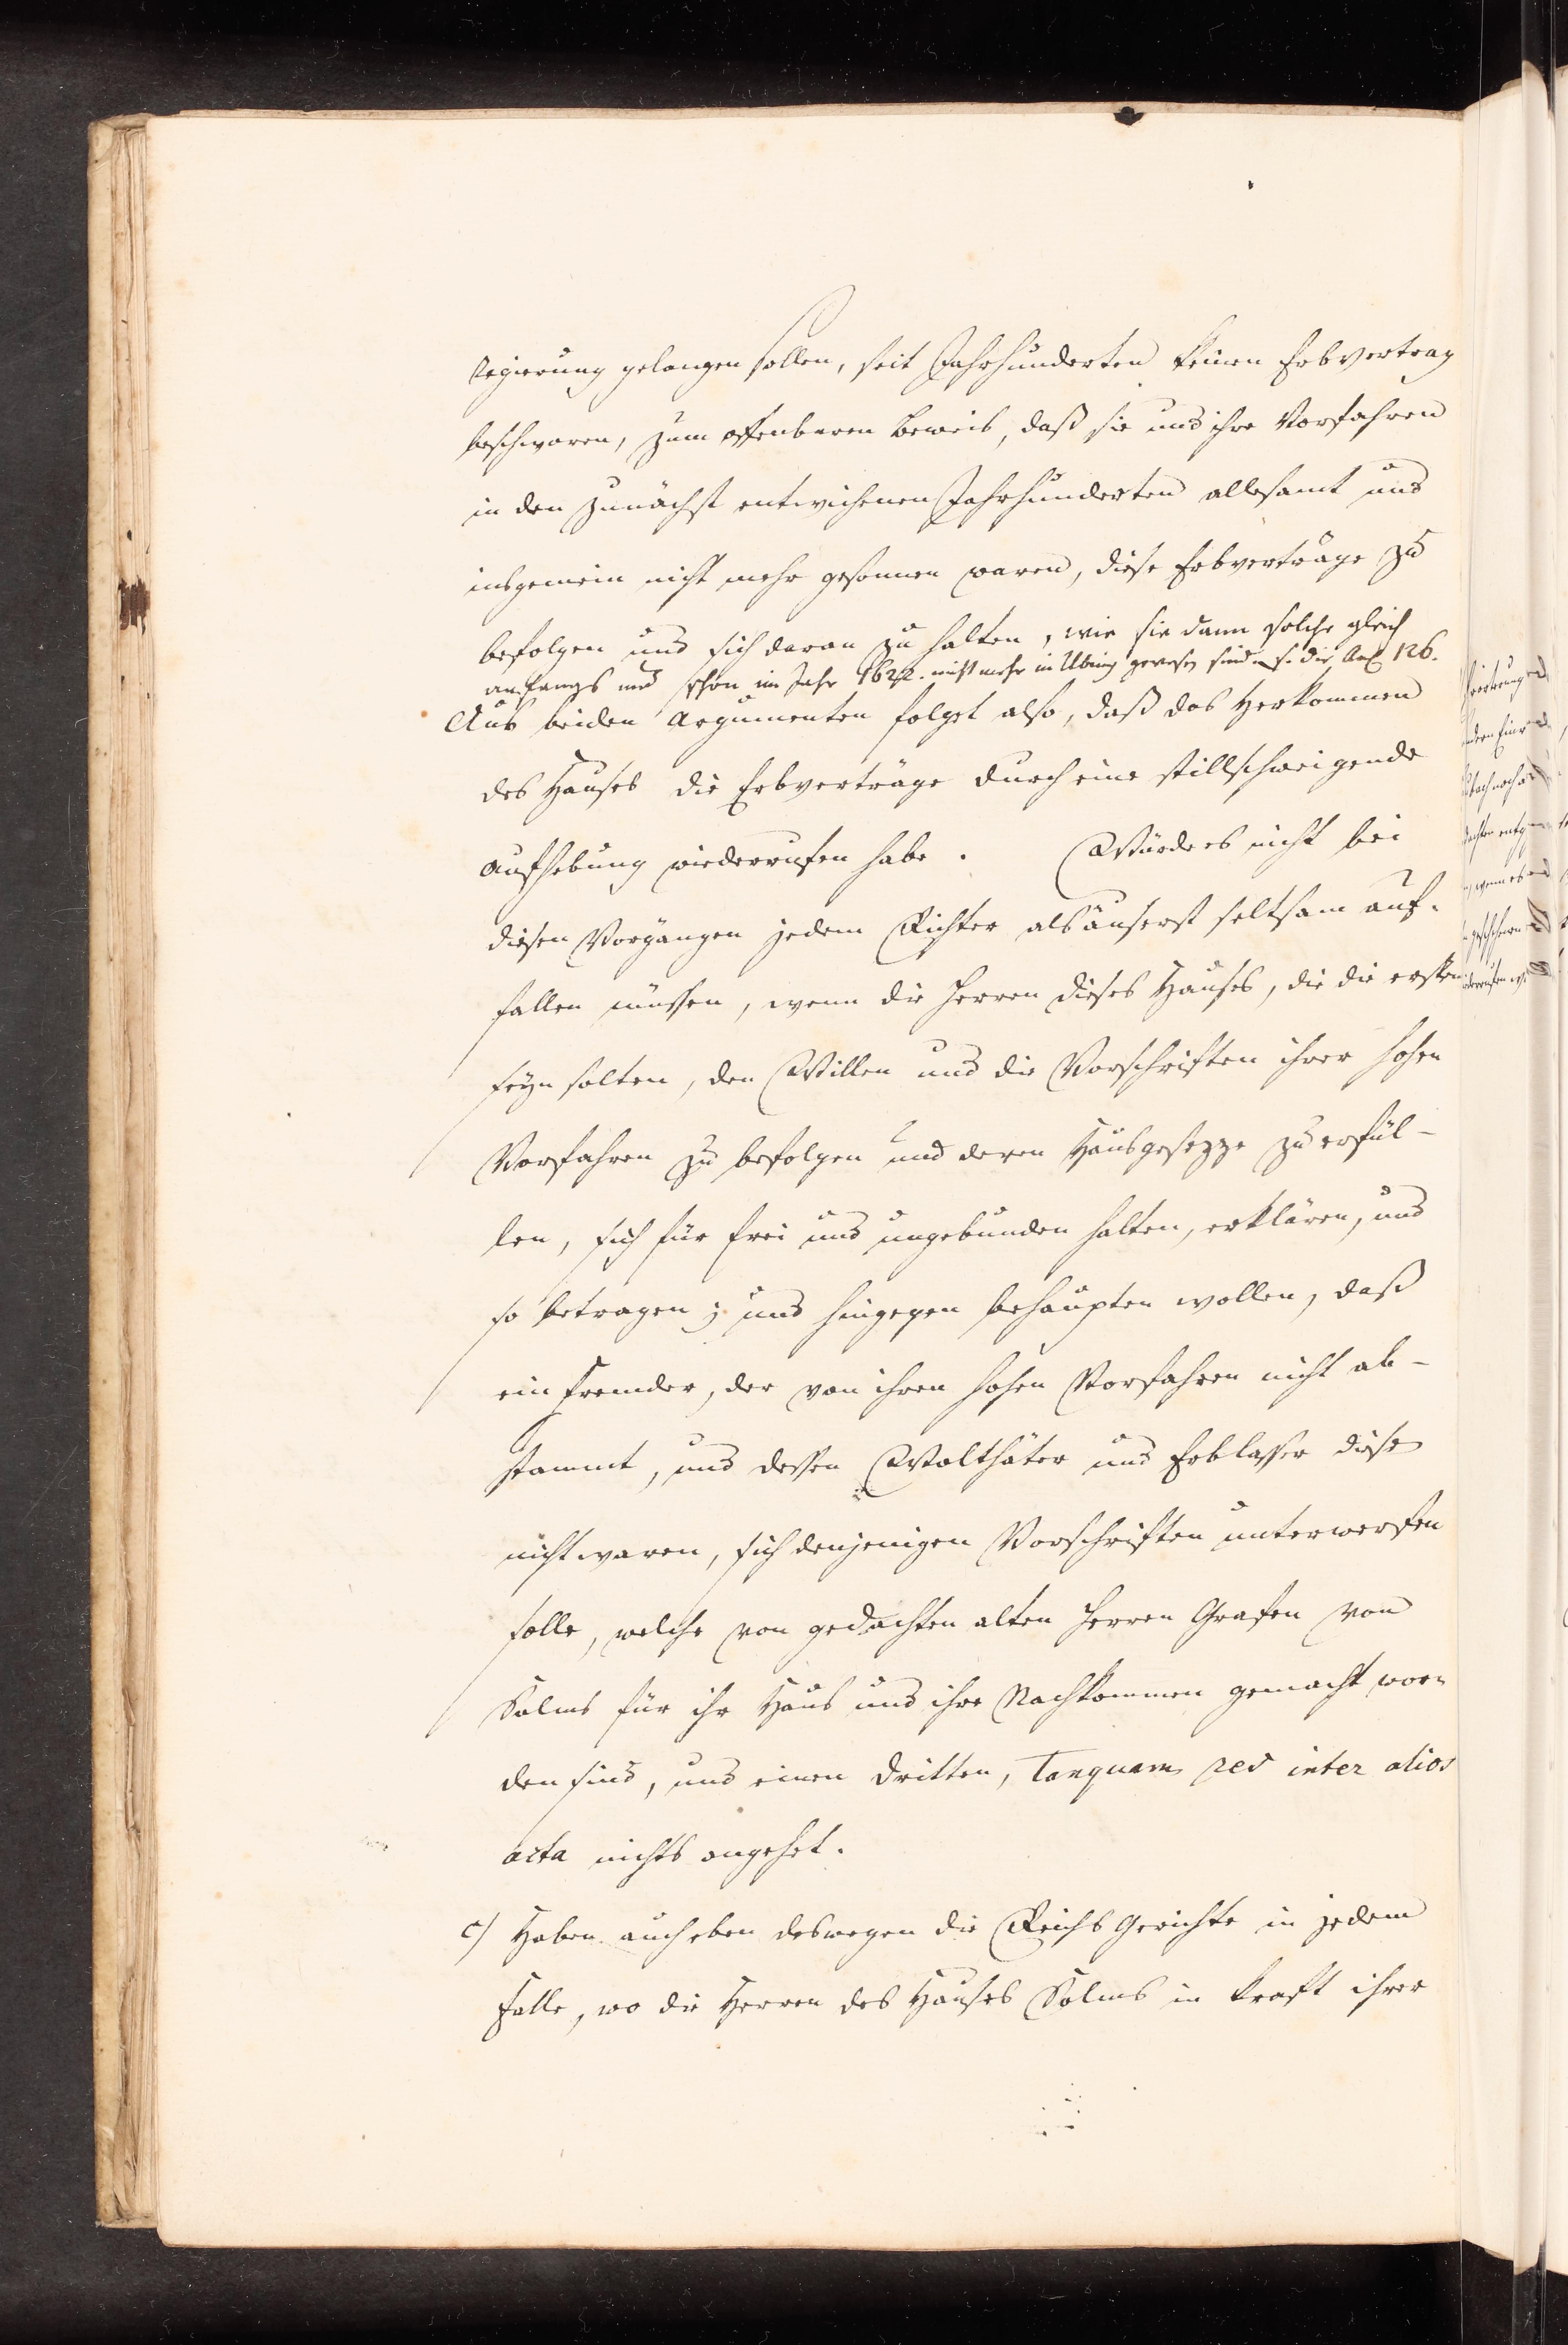 Regierung gelangen sollen, seit Jahrhunderten keinen Erbvertrag
beschworen, zum offenbaren Beweis, daß sie und ihre Vorfahren
in den zunächst entwichenen Jahrhunderten allesamt und
insgemein nicht mehr gesonnen waren, diese Erbverträge zu
befolgen und sich daran zu halten, wie sie dann solche gleich
anfangs und schon im Jahr 1622. nicht mehr in Übung gewesen sind s. die Anl 126.
Aus beiden Argumenten folget also, daß das Herkommen
des Hauses die Erbverträge durch eine stillschweigende
Aufhebung wiederrufen habe. Würde es nicht bei
diesen Vorgängen jedem Richter als äuserst seltsam auf-
fallen müssen, wenn die Herren dieses Hauses, die die ersten
seyn solten, den Willen und die Vorschriften ihrer hohen
Vorfahren zu befolgen und deren Hausgesezze zu erfül-
len, sich für frei und ungebunden halten, erklären, und
so betragen; und hingegen behaupten wollen, daß
ein Fremder, der von ihren hohen Vorfahren nicht ab-
stammt, und dessen Wolthäter und Erblasser diese
nicht waren, sich denjenigen Vorschriften unterwerfen
solle, welche von gedachten alten Herren Grafen von
Solms für ihr Haus und ihre Nachkommen gemacht wor-
den sind, und einen Dritten, tanquam res inter alios
acta nichts angehet.
c) Haben auch eben deswegen die Reichs Gerichte in jedem
Falle, wo die Herren des Hauses Solms in Kraft ihrer